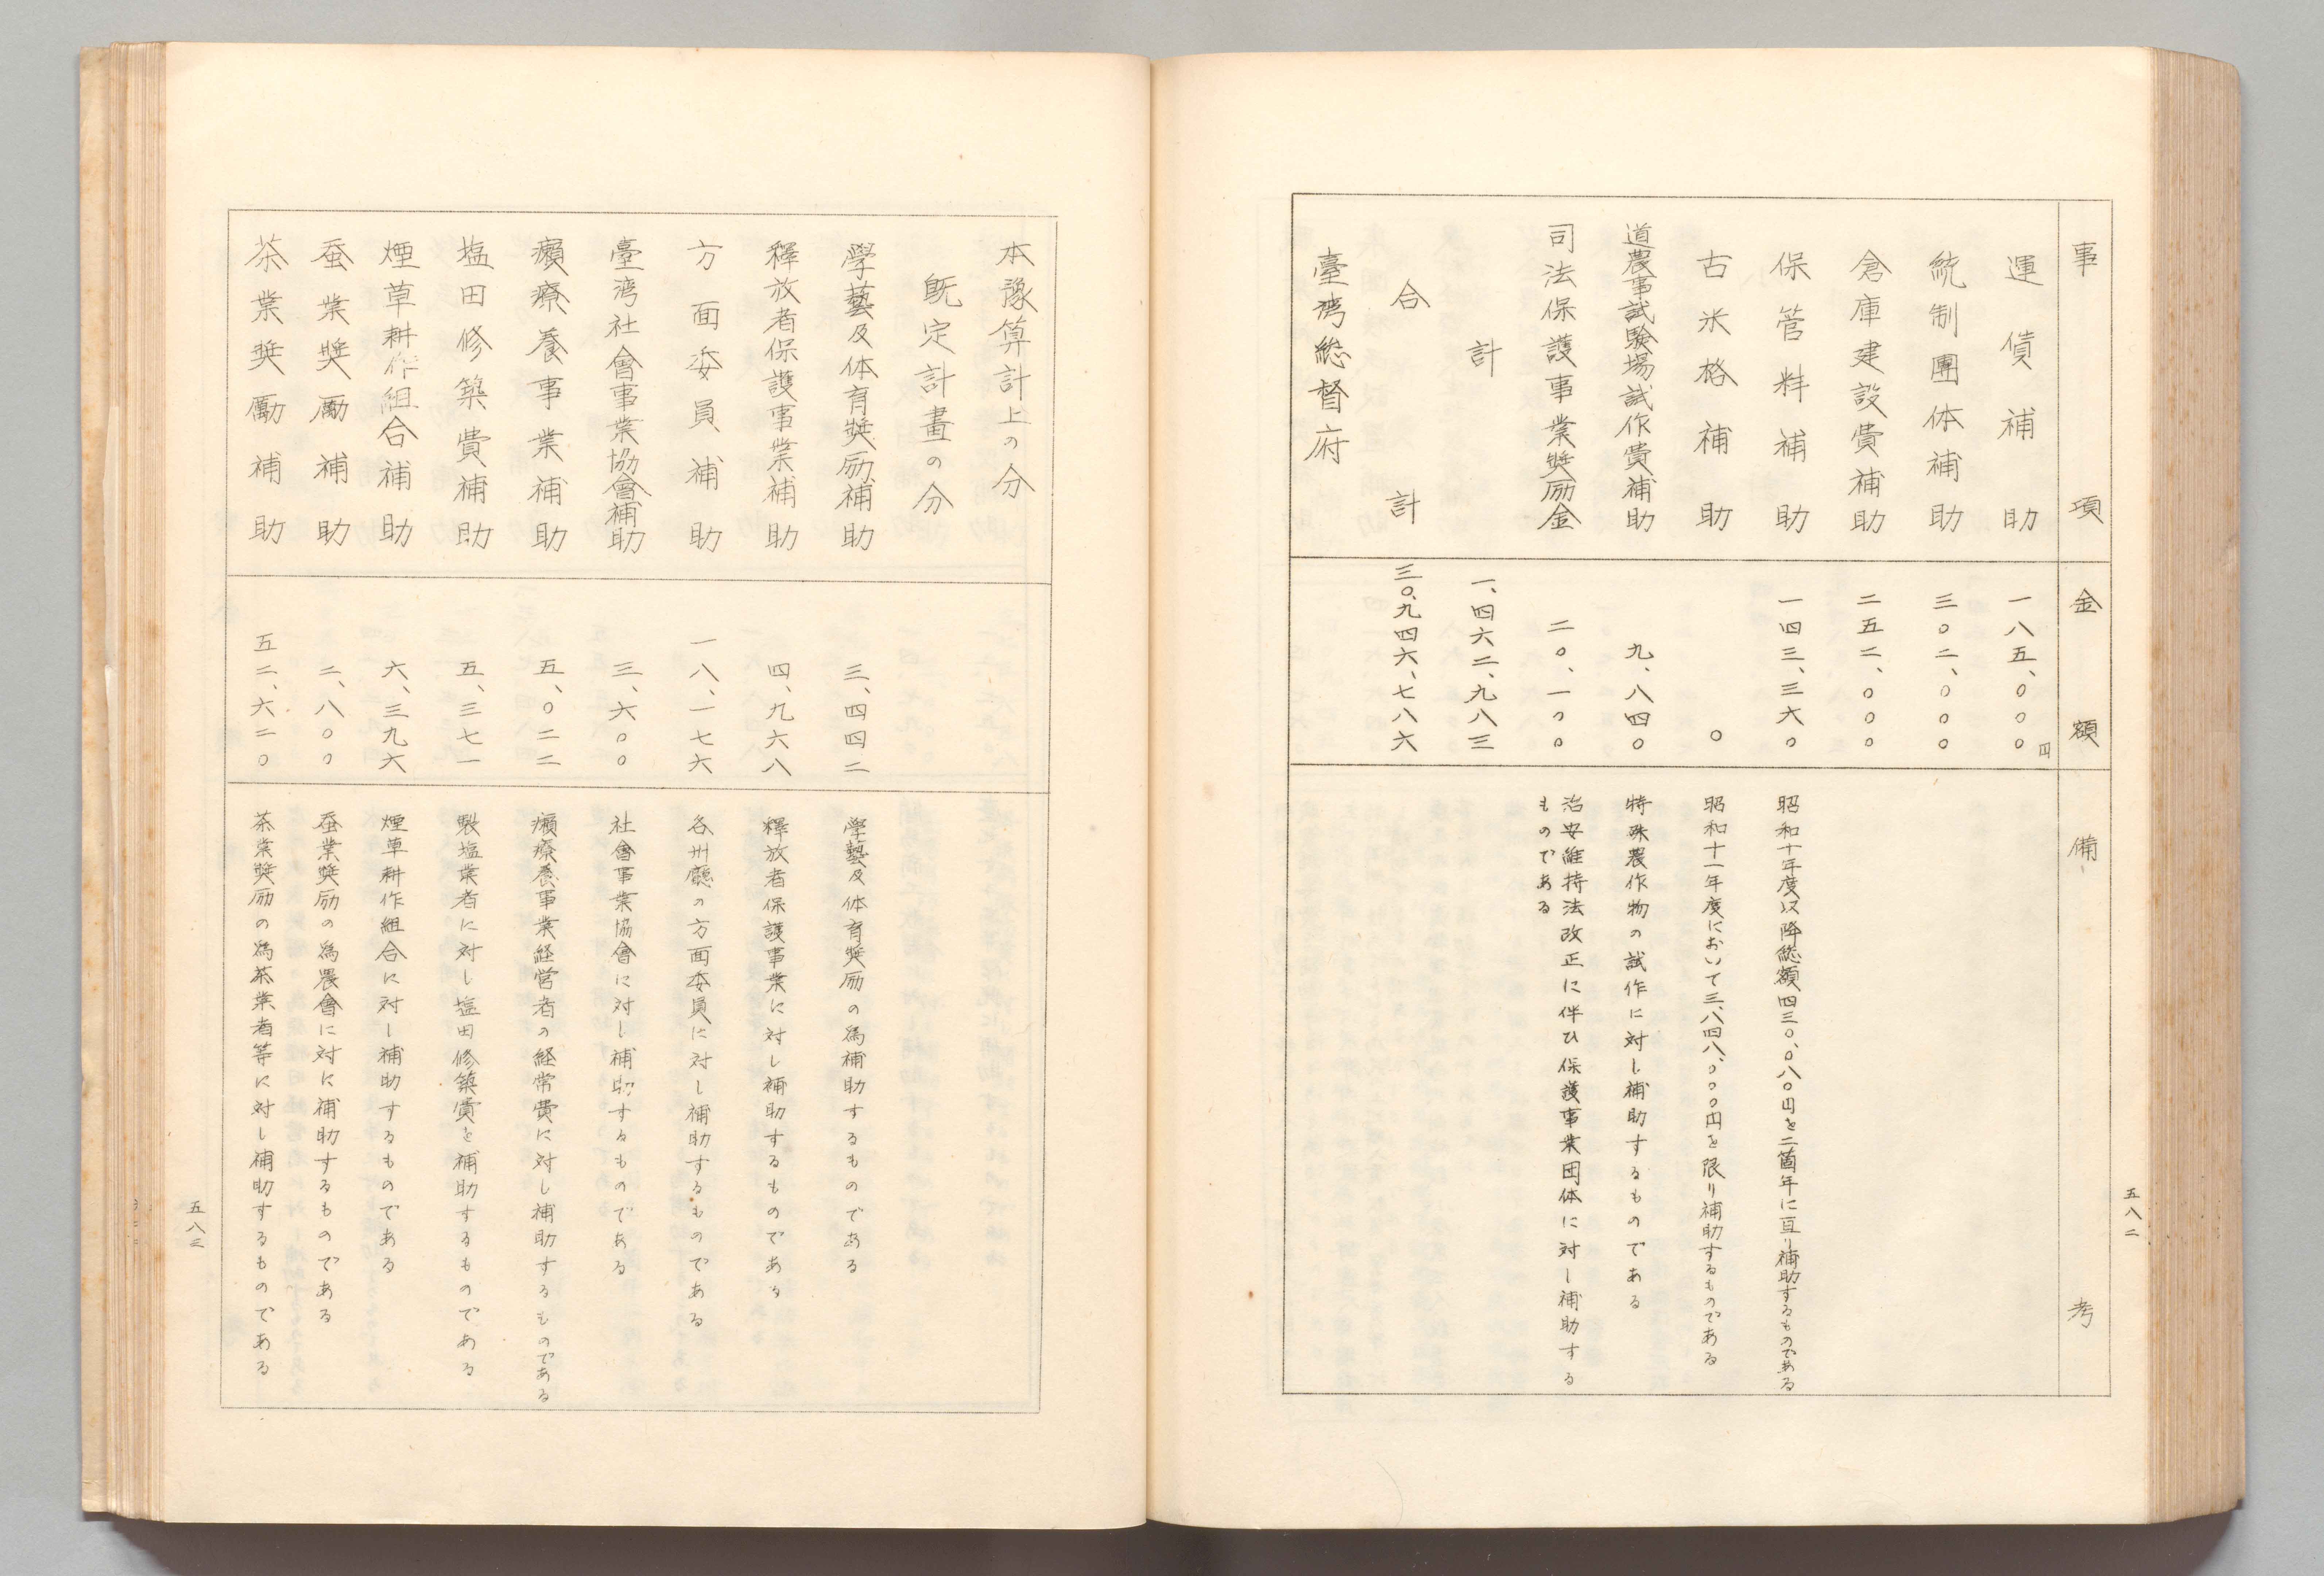 五八二
事項 金額 備考
運賃補助 一八五、〇〇〇円
統制團体補助 三〇二、〇〇〇
倉庫建設費補助 二五二、〇〇〇
保管料補助 一四三、三六〇 昭和十年度以降総額四三〇、〇八〇円を二箇年に亘り補助するものである
古米格補助 〇 昭和十一年度において三、八四八、〇〇〇円を限り補助するものである
道農事試験場試作費補助 九、八四〇 特殊農作物の試作に対し補助するものである
司法保護事業奬励金 二〇、一〇〇 治安維持法改正に伴ひ保護事業団体に対し補助する
ものである
計 一、四六二、九八三
合計 三〇、九四六、七八六
臺湾総督府
本豫算計上の分
既定計畫の分
學藝及体育奬励補助 三、四四二 學藝及体育奬励の為補助するものである
釋放者保護事業補助 四、九六八 釋放者保護事業に対し補助するものである
方面委員補助 一八、一七六 各州廳の方面委員に対し補助するものである
臺湾社會事業協會補助 三、六〇〇 社會事業協會に対し補助するものである
癩療養事業補助 五、〇二二 癩療養事業経営者の経常費に対し補助するものである
塩田修築費補助 五、三七一 製塩業者に対し塩田修築費を補助するものである
煙草耕作組合補助 六、三九六 煙草耕作組合に対し補助するものである
蚕業奬勵補助 二、八〇〇 蚕業奬励の為農會に対に補助するものである
茶業奬勵補助 五二、六二〇 茶業奬励の為茶業者等に対し補助するものである
五八三